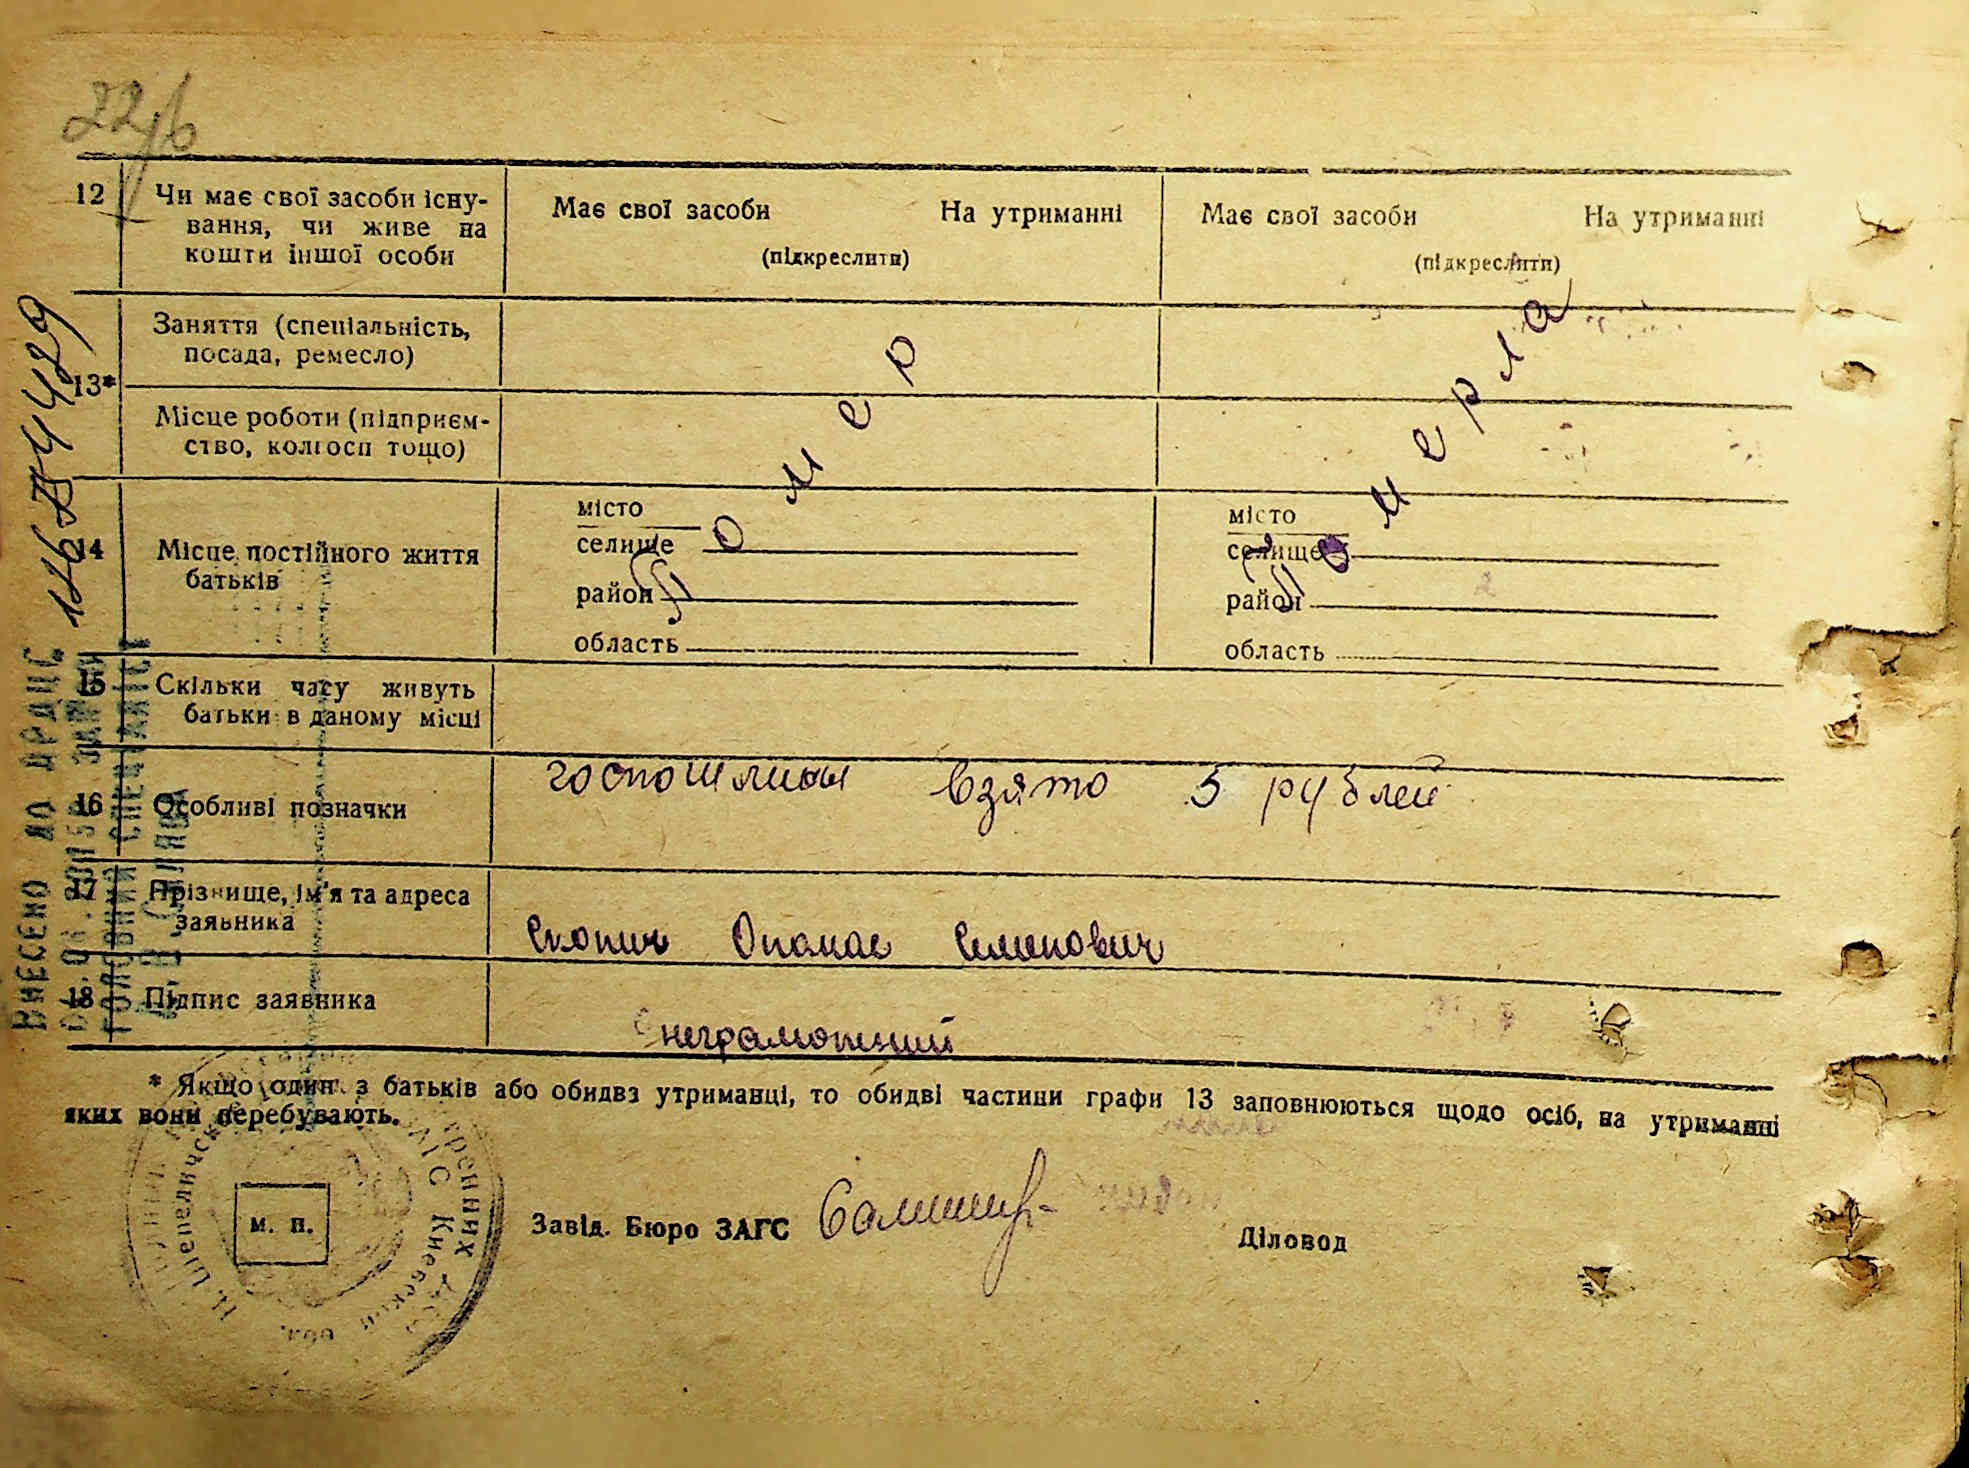 12
Чи має свої засоби існу-
вання, чи живе на
кошти іншої особи
Має свої засоби На утриманні
(підкреслити)
Має свої засоби На утриманні
(підкреслити)
13*
Заняття (спеціальність,
посада, ремесло)
Місце роботи (підприєм-
ство, колгосп тощо)
помер
померла
14
Місце постійного життя
батьків
місто
селище
район
область
місто
селище
район
область
15
Скільки часу живуть
батьки в даному місці
16
Особливі позначки
госпошлины взято 5 рублей
17
Прізвище, ім'я та адреса
заявника
Скопич Опанас Семенович
18
Підпис заявника
неграмотний
* Якщо один з батьків або обидва утриманці, то обидві частини графи 13 заповнюються щодо осіб, на утриманні
яких вони перебувають.
м. п.
Завід. Бюро ЗАГС
Діловод
ВНЕСЕНО ДО ДРАЦС
ГОЛОВНИЙ СПЕЦІАЛІСТ
ЗАГС Киевской обл.